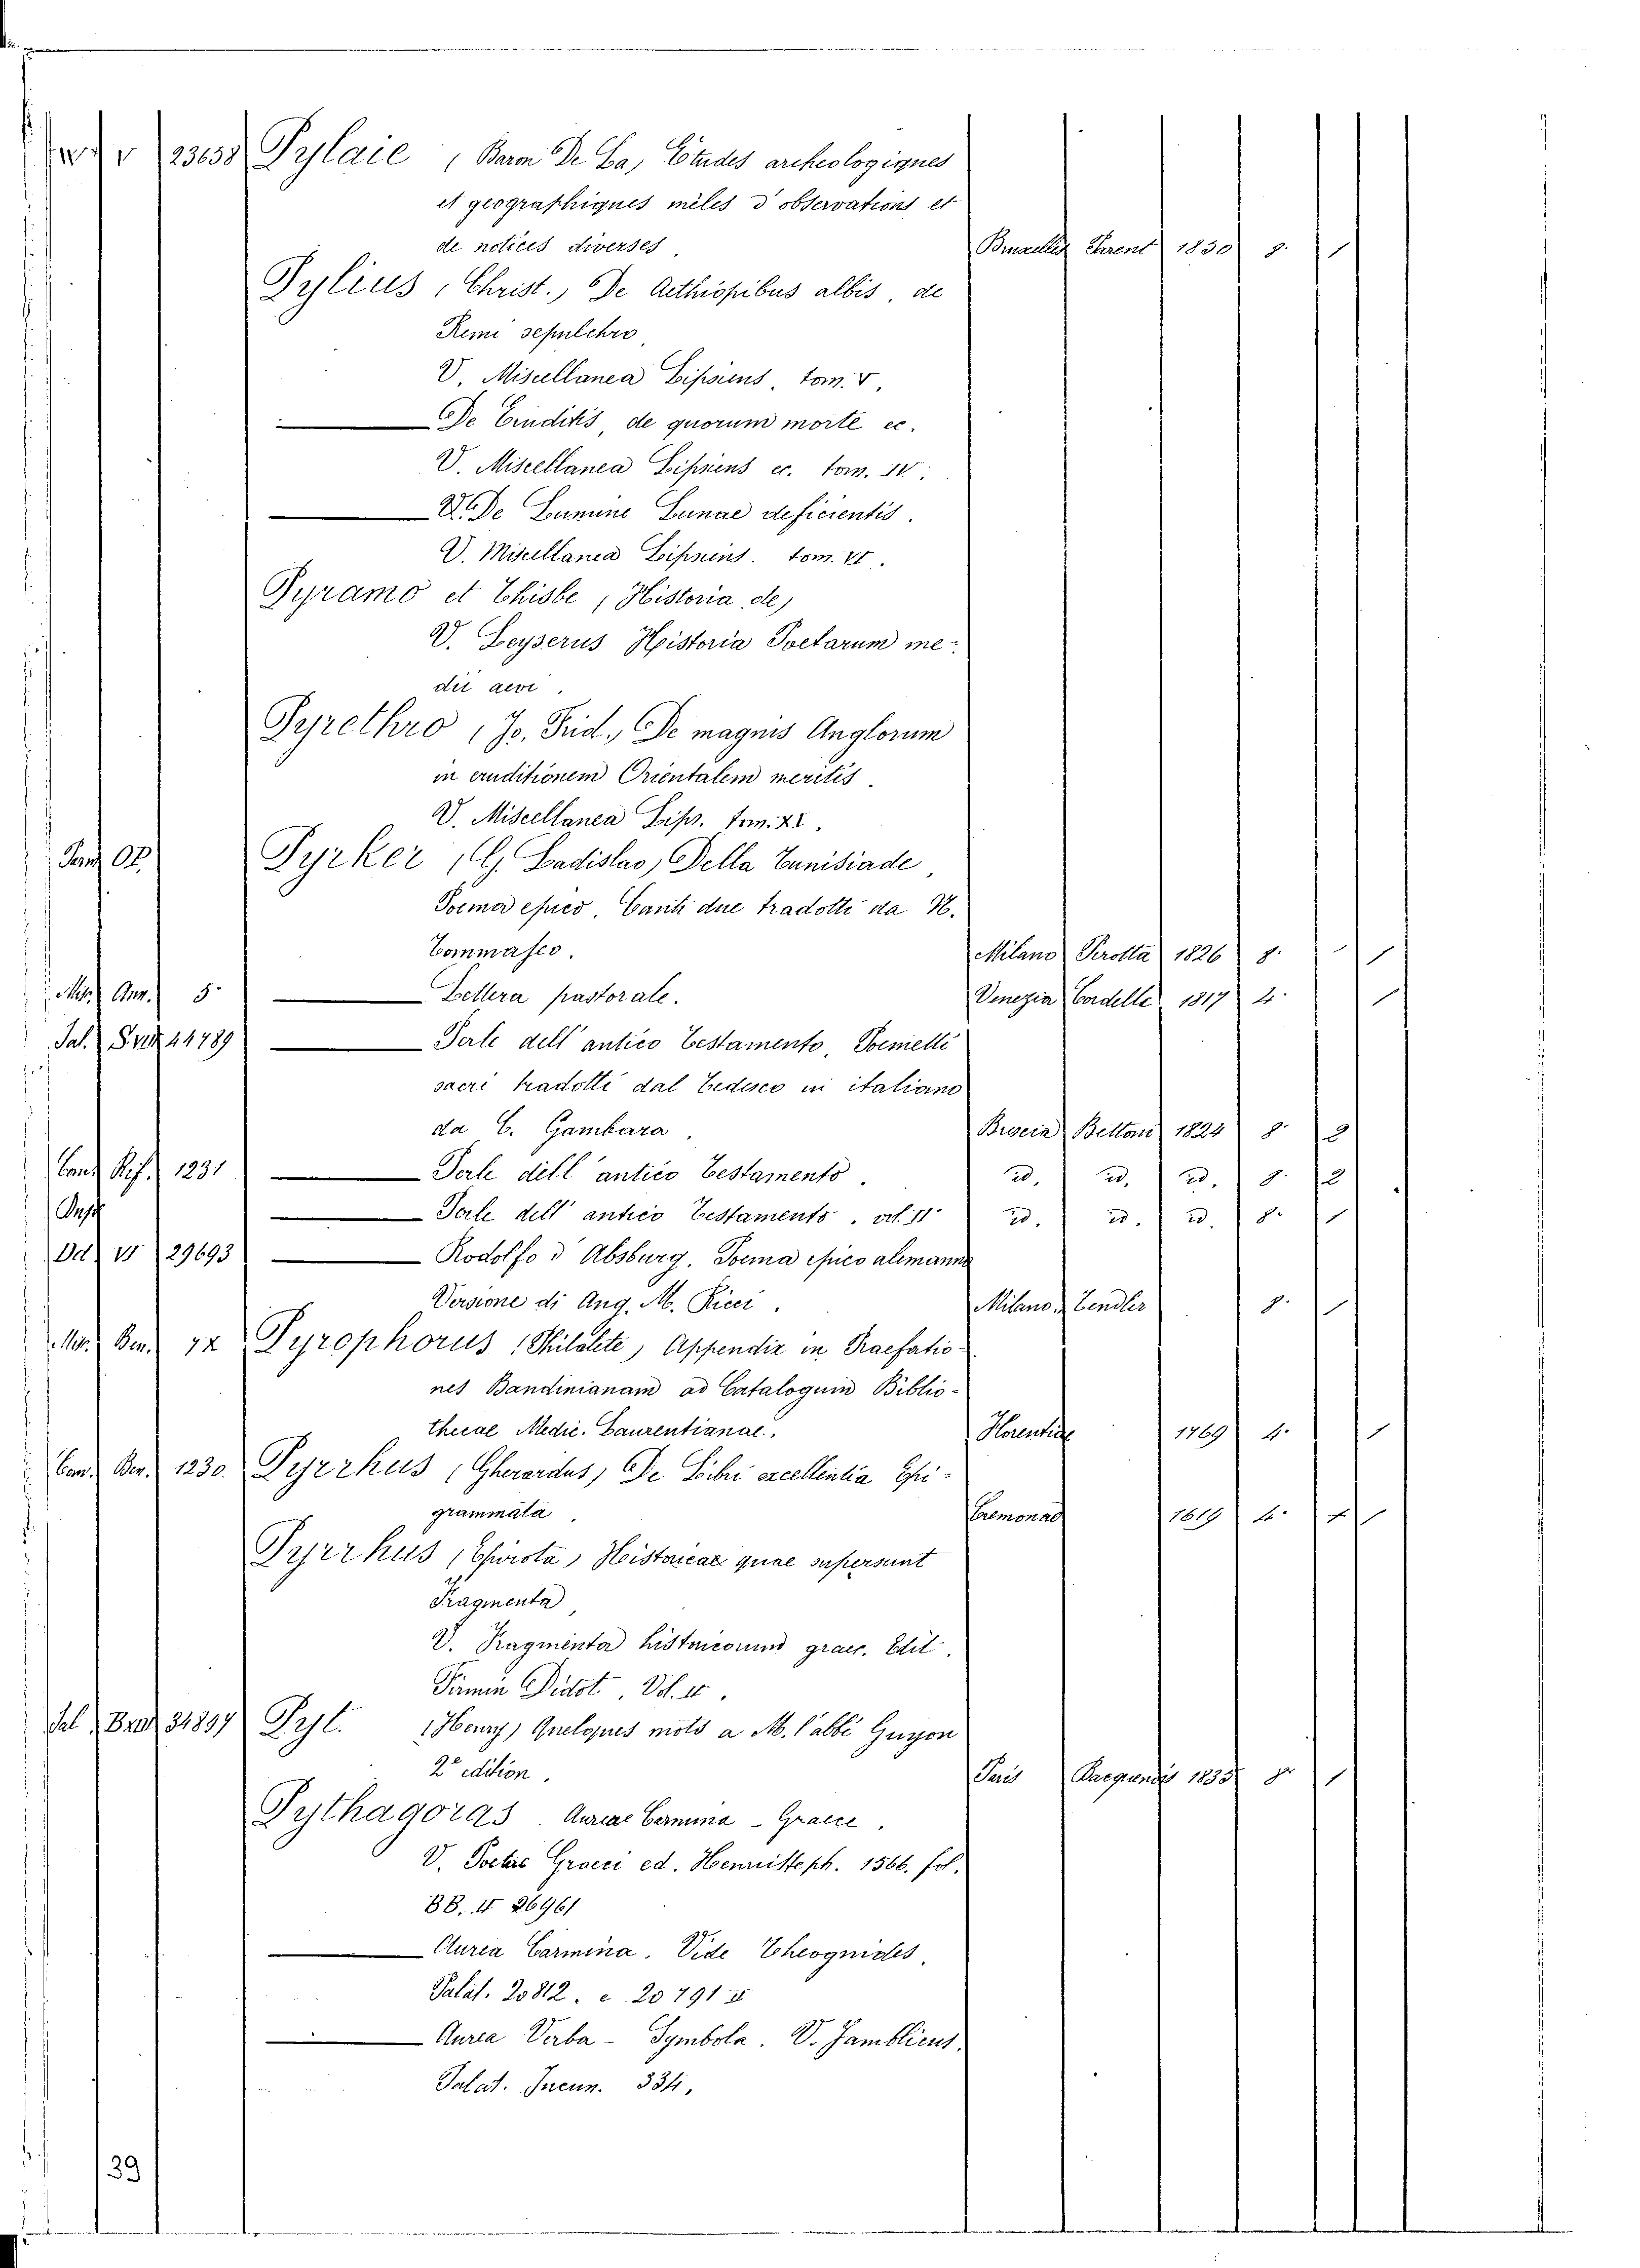 23658 Pylaie, (Baron De La, Etudes archeologiques
et geographiques mèles d'observations et
de notices diverses. Bruxelles Parent 1850 8. 1
Pylius, Christ., De Aethiopibus albis, de
Remi sepulchro
V. Miscellanea Lipsiens. tom. V.
De Eruditis, de quorum morte ec.
V. Miscellanea Lipsiens ec. tom. IV.
De Lumine Lunae deficientis.
V. Miscellanea Lipsiens. tom. VI.
Pyramo et Thisbe, (Historia de)
V. Leyserus Historia Poetarum me-
dii aevi.
Pyrethro, (Jo. Frid., De magnis Anglorum
in eruditionem Orientalem meritis.
V. Miscellanea Lips. tom. XI.
Pyrker, (G. Ladislao) Della Tunisiade,
Poema epico. Canti due tradotti da N.
Tommaseo. Milano Pirotta 1826 8. 1
Ann. 5 Lettera pastorale. Venezia Cordella 1817 4. 1
Pal. 44789 Perle dell'antico testamento, Poemetti
sacri tradotti dal tedesco in italiano
da C. Gambara. Brescia Bettoni 1824 8. 2
Cons. Rif. 1231 Perle dell'antico testamento. id. id. id. 8. 2
Perle dell'antico testamento. vol. II id. id. id. 8. 1
Od. VI 29693 Rodolfo d'Absburg. Poema epico alemanno
Versione di Ang. M. Ricci. Milano, Tendler 8. 1
Ben. 72 Pyrophorus (Philalete) Appendix in Praefatio-
nes Bandinianam ad Catalogum Biblio-
thecae Medic. Laurentianae. Florentiae 1769 4. 1
Ben. 1230. Pyrrhus (Gherardus) De Libri excellentia Epi-
grammata. Cremonae 1619 4. 1
Pyrrhus (Epirota) Historicae quae supersunt
Fragmenta
V. Fragmenta historicorum graec. Edit.
Firmin Didot, Vol. II.
Pal. 34897 Pyt. (Henry) Quelques mots a M. l'abbé Guyon
2e edition. Paris 1835 8. 1
Pythagoras. Aureae Carmina - Graece.
V. Poetae Graeci ed. Henr. Steph. 1566. fol.
BB. II 26961
Aurea Carmina. Vide Theognides.
Palat. 20812. e 20791 II
Aurea Verba - Symbola. V. Jamblicus.
Palat. Incun. 334.
39